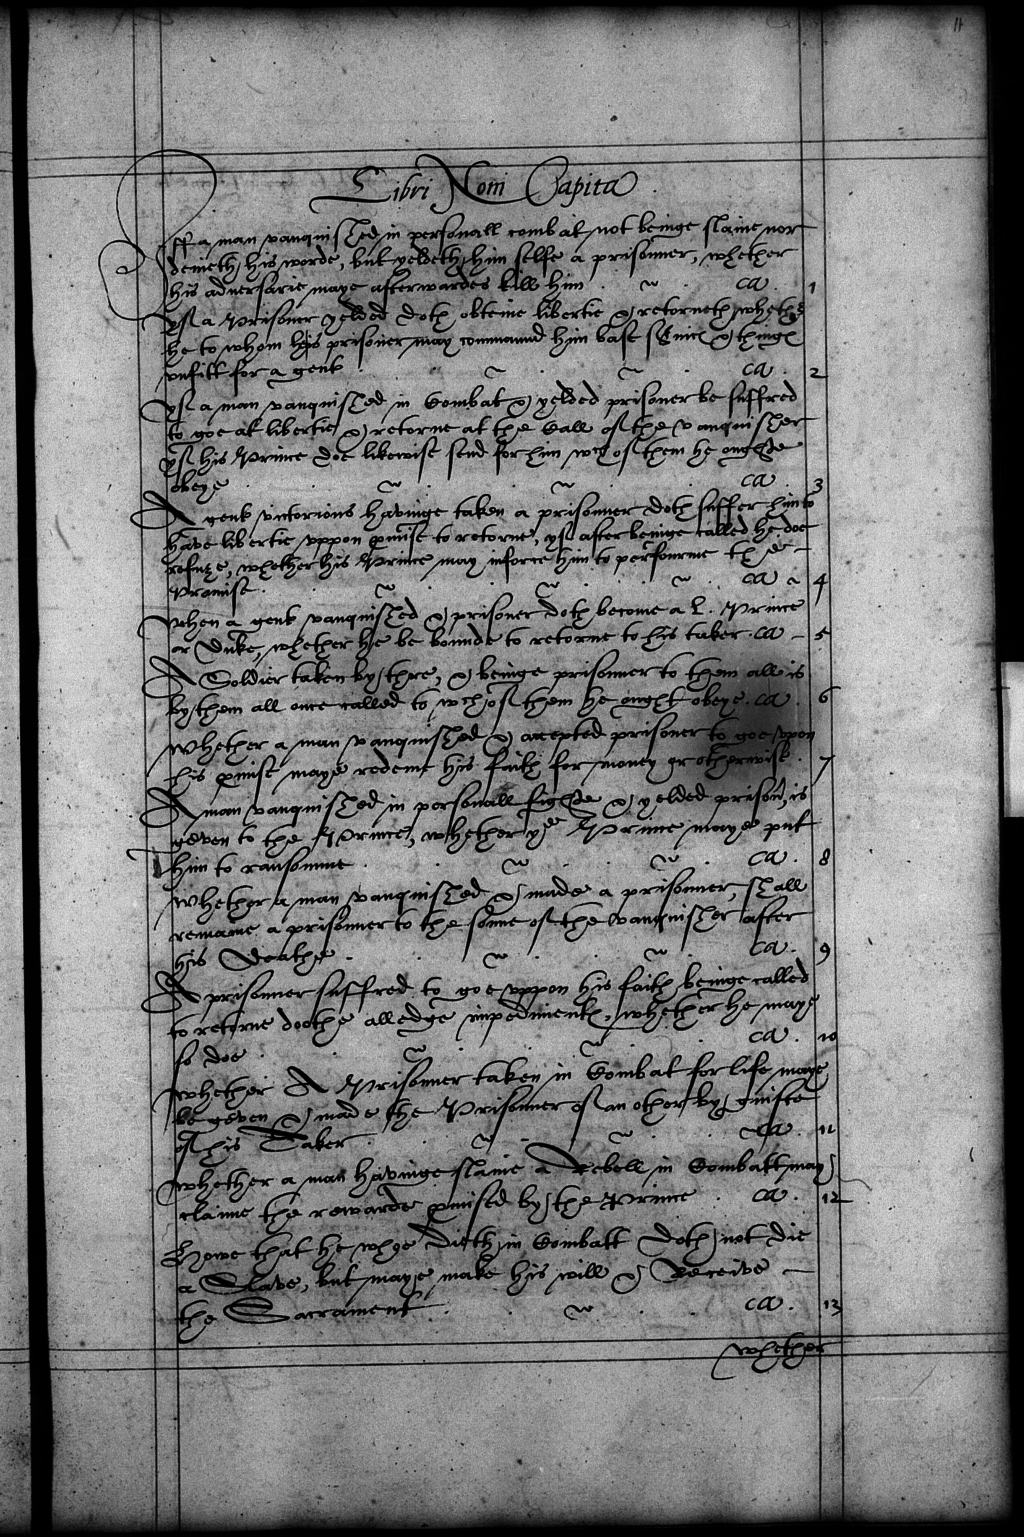 11
Libri Noni Capita
Iff a man vanquished in personall combat not beinge slaine nor
denieth his worde, but yeldeth him selfe a prisonner, whether
his adversarie maye afterwardes kill him . ca . 1
Yf a Prisoner yelded doth obteine libertie & retorneth, whether
he to whom he is prisoner may commaund him base & thinges
unfitt for a gent . ca . 2
Yf a man vanquished in Combat & yelded prisoner be suffred
to goe at libertie & retorne at the Call of the vanquisher
yf his Prince doe likewise send for him wch of them he oughte
obeye . ca . 3
A gent victorious havinge taken a prisonner doth suffer him to
have libertie uppon pmise to retorne, yf after beinge called he doe
refuze, whether his Prince may inforce him to perfourme the
Promise . ca 4
When a gent vanquished & prisoner doth become a L. Prince
or Duke, whether he be bounde to retorne to his taker . ca 5
A Soldier taken by thre, & beinge prisoner to them all is
by them all once called to wch of them he ought obeye . ca . 6
Whether a man vanquished & accepted prisoner to goe upon
his pmise maye redeme his faith for money or otherwise . 7
A man vanquished in personall fighte & yelded prisoner, is
geven to the Prince, whether ye Prince maye put
him to ransomme . ca . 8
Whether a man vanquished & made a prisonner, shall
remaine a prisonner to the sonne of the vanquisher after
his Deathe . ca . 9
A prisonner suffred to goe uppon his faith beinge called
to retorne doothe alledge impedimente, whether he maye
so doe . ca . 10
Whether A Prisonner taken in Combat for life maye
be geven & made the Prisonner of an other by guifte
of his Taker . ca . 11
Whether a man havinge slaine a Rebell in Combatt may
claime the rewarde pmised by the Prince . ca . 12
Howe that he whoe dieth in Combatt doth not die
a Slave, but maye make his will & Receive
the Sacrament . ca . 13
whether